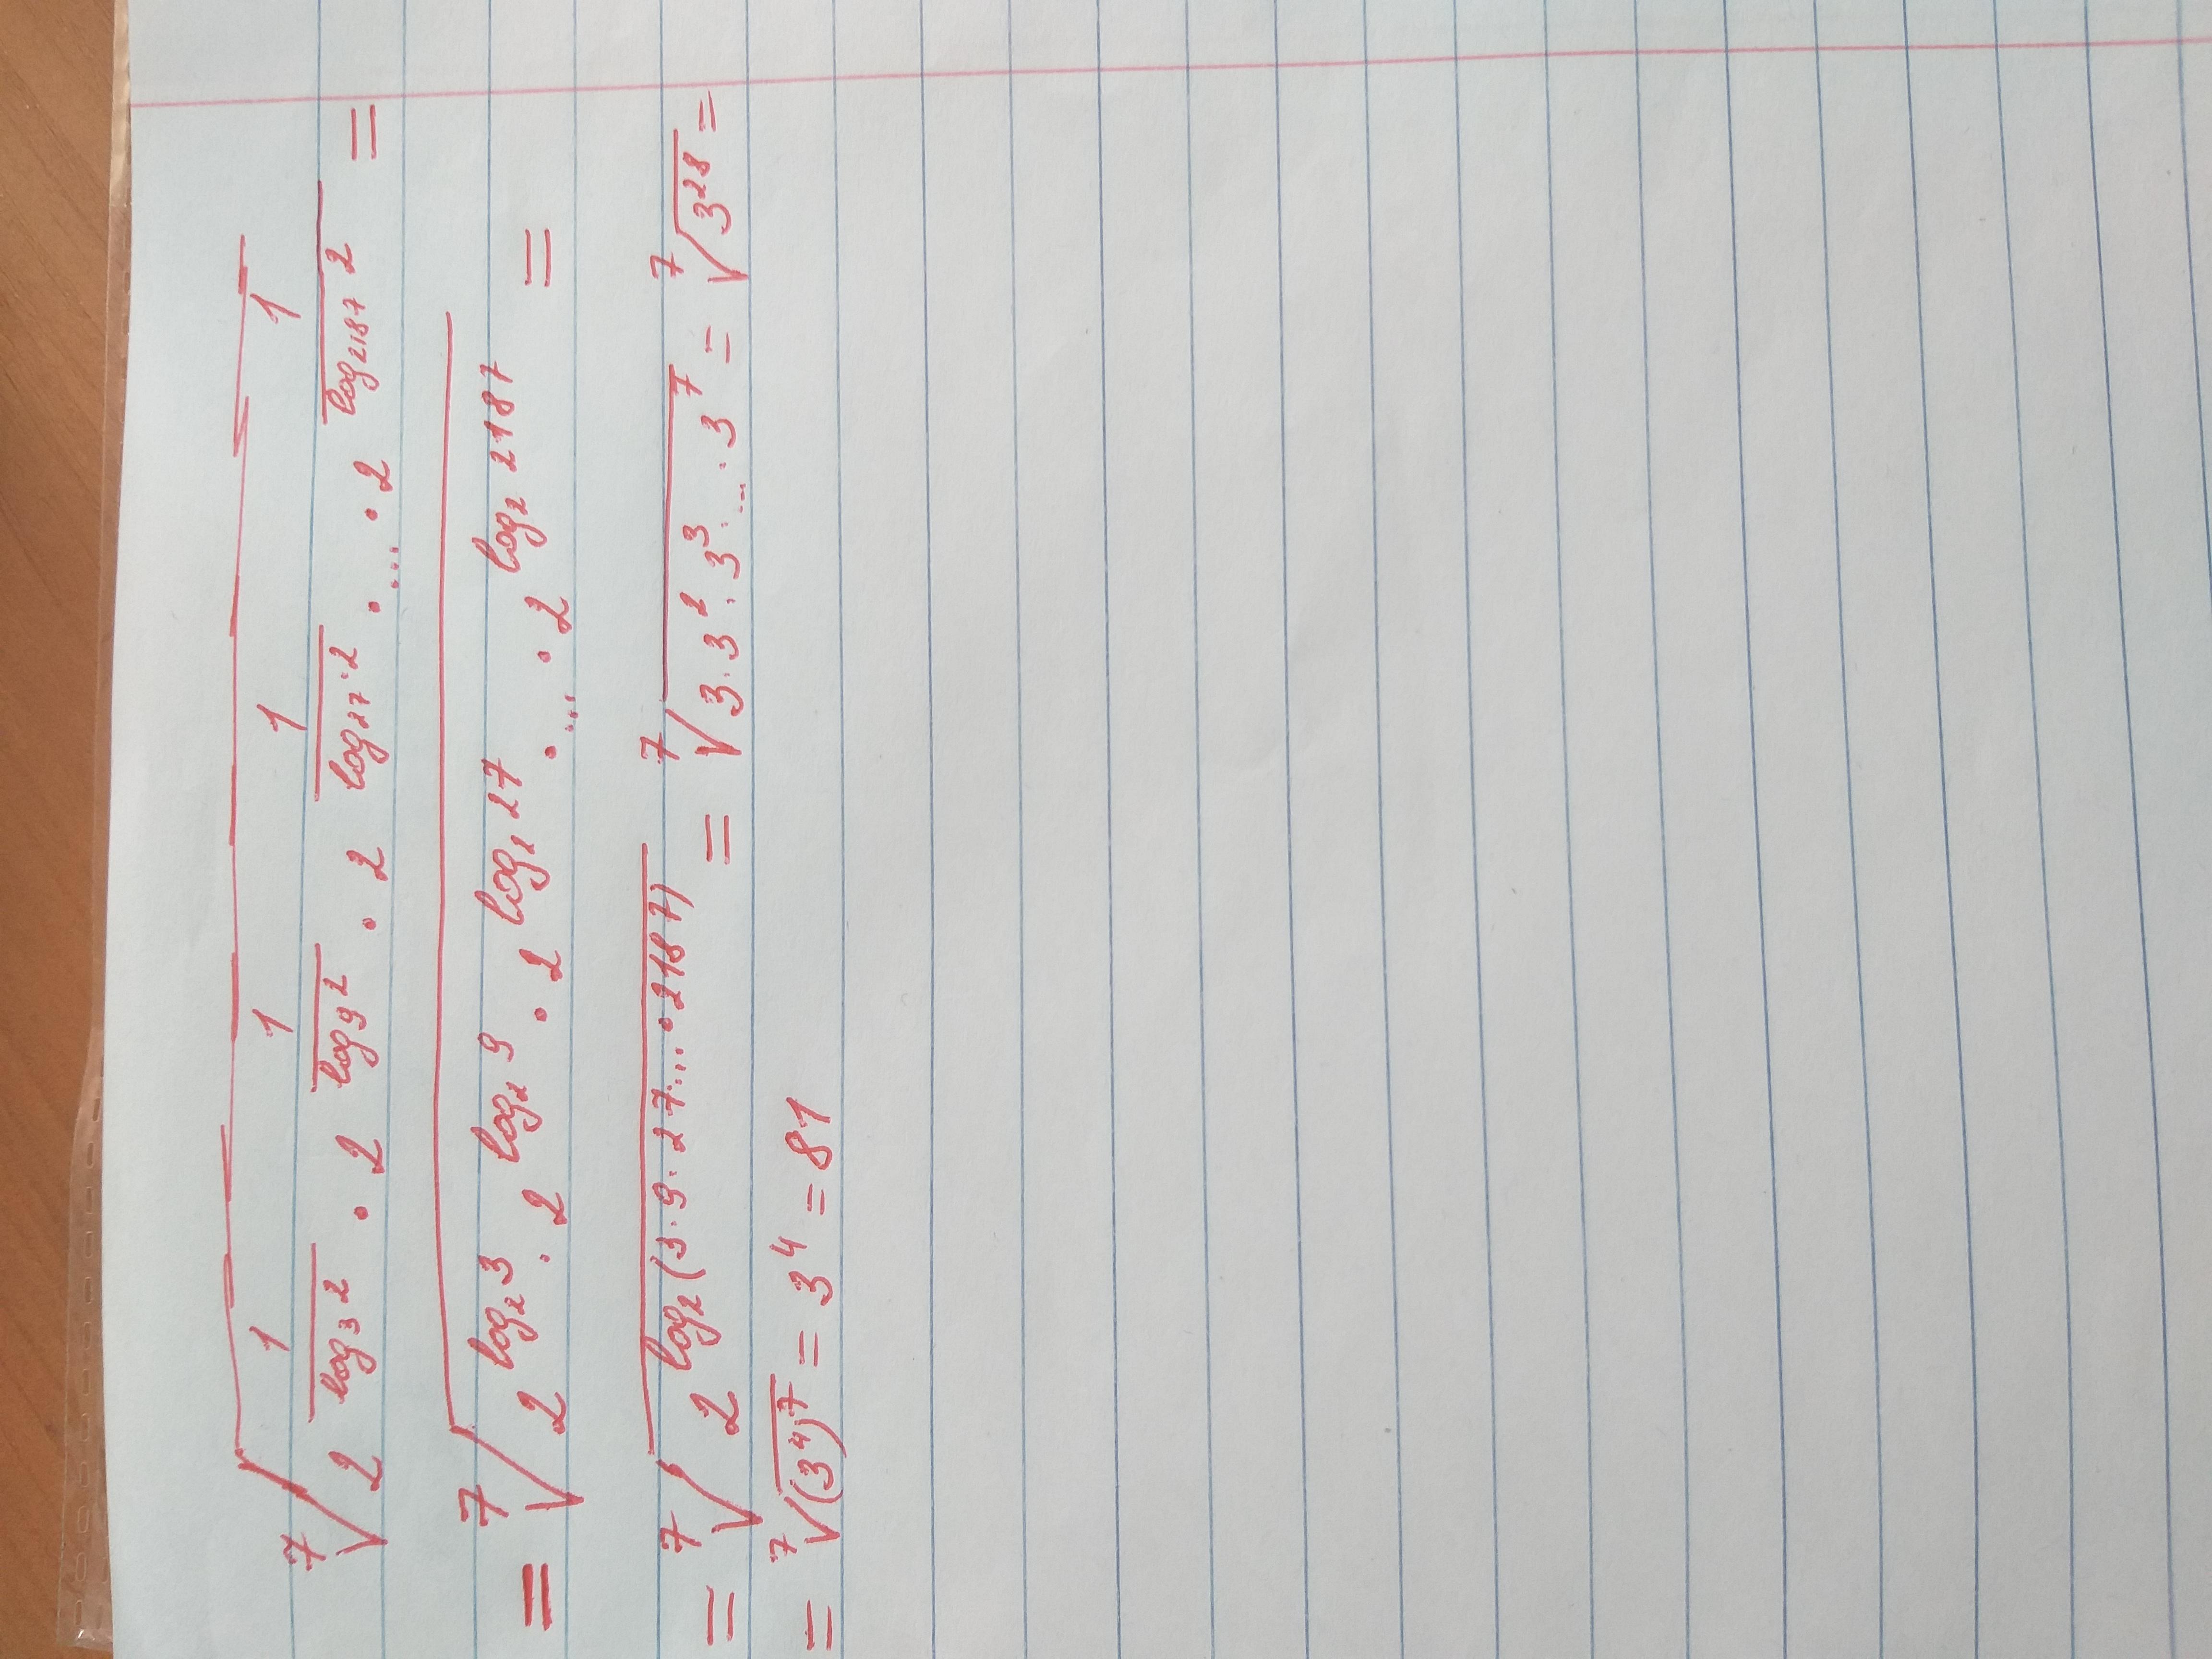 ⁷√(2^(1/log₃2) · 2^(1/log₉2) · 2^(1/log₂₇2) · ... · 2^(1/log₂₁₈₇2)) =
= ⁷√(2^(log₂3) · 2^(log₂9) · 2^(log₂27) · ... · 2^(log₂2187)) =
= ⁷√(2^(log₂(3·9·27·...·2187))) = ⁷√(3·3²·3³·...·3⁷) = ⁷√(3²⁸) =
= ⁷√((3⁴)⁷) = 3⁴ = 81